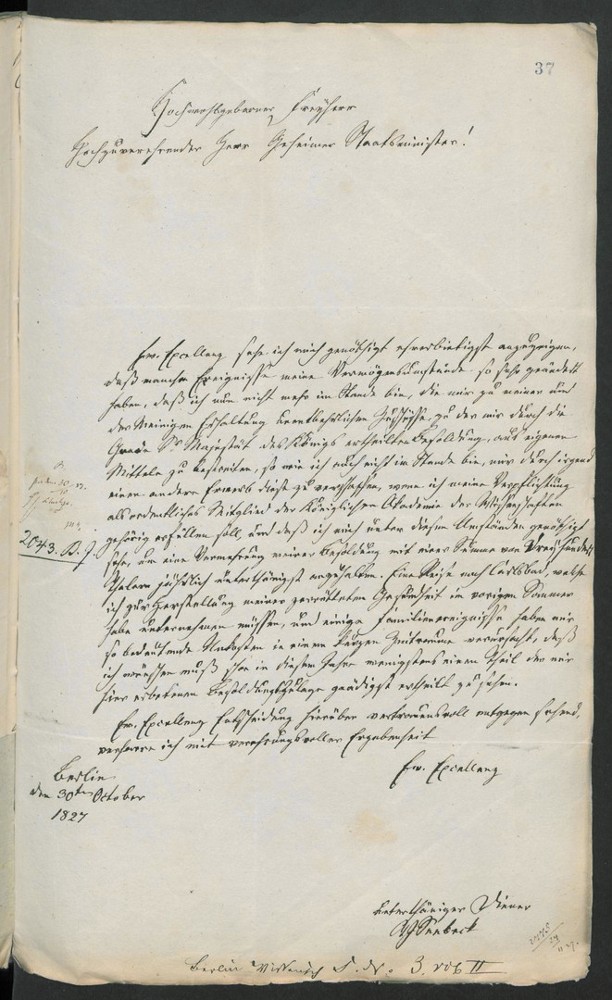 37
Hochwohlgeborner Freyherr
Hochzuverehrender Herr Geheimer Staatsminister!
Ew. Excellenz sehe ich mich genöthigt ehrerbietigst anzuzeigen,
daß manche Ereignisse meine Vermögensumstände so sehr geändert
haben, daß ich nun nicht mehr im Stande bin, die mir zu meiner und
der Meinigen Erhaltung unentbehrlichen Zuschüsse, zu der mir durch die
Gnade Sr Majestät des Königs ertheilten Besoldung, aus eigenen
Mitteln zu bestreiten, so wie ich auch nicht im Stande bin, mir durch irgend
einen andern Erwerb diese zu verschaffen, wenn ich meine Verpflichtung
als ordentliches Mitglied der Königlichen Akademie der Wissenschaften
gehörig erfüllen soll, und daß ich mich unter diesen Umständen genöthigt
sehe, um eine Vermehrung meiner Besoldung mit einer Summe von Dreyhundert
Thalern jährlich unterthänigst anzuhalten. Eine Reise nach Carlsbad, welche
ich zur Herstellung meiner zerrütteten Gesundheit im vorigen Sommer
habe unternehmen müssen, und einige Familienereignisse haben mir
so bedeutende Unkosten in einem kurzen Zeitraume verursacht, daß
ich wünschen muß, schon in diesem Jahre wenigstens einen Theil der mir
hier erbetenen Besoldungszulage gnädigst ertheilt zu sehen.
Ew. Excellenz Entscheidung hierüber vertrauensvoll entgegen sehend,
verharre ich mit verehrungsvoller Ergebenheit
Ew. Excellenz
2043. B. J.
Berlin
den 30ten October
1827
unterthäniger Diener
TJSeebeck
Berlin Wissensch S. N. 3. vol II